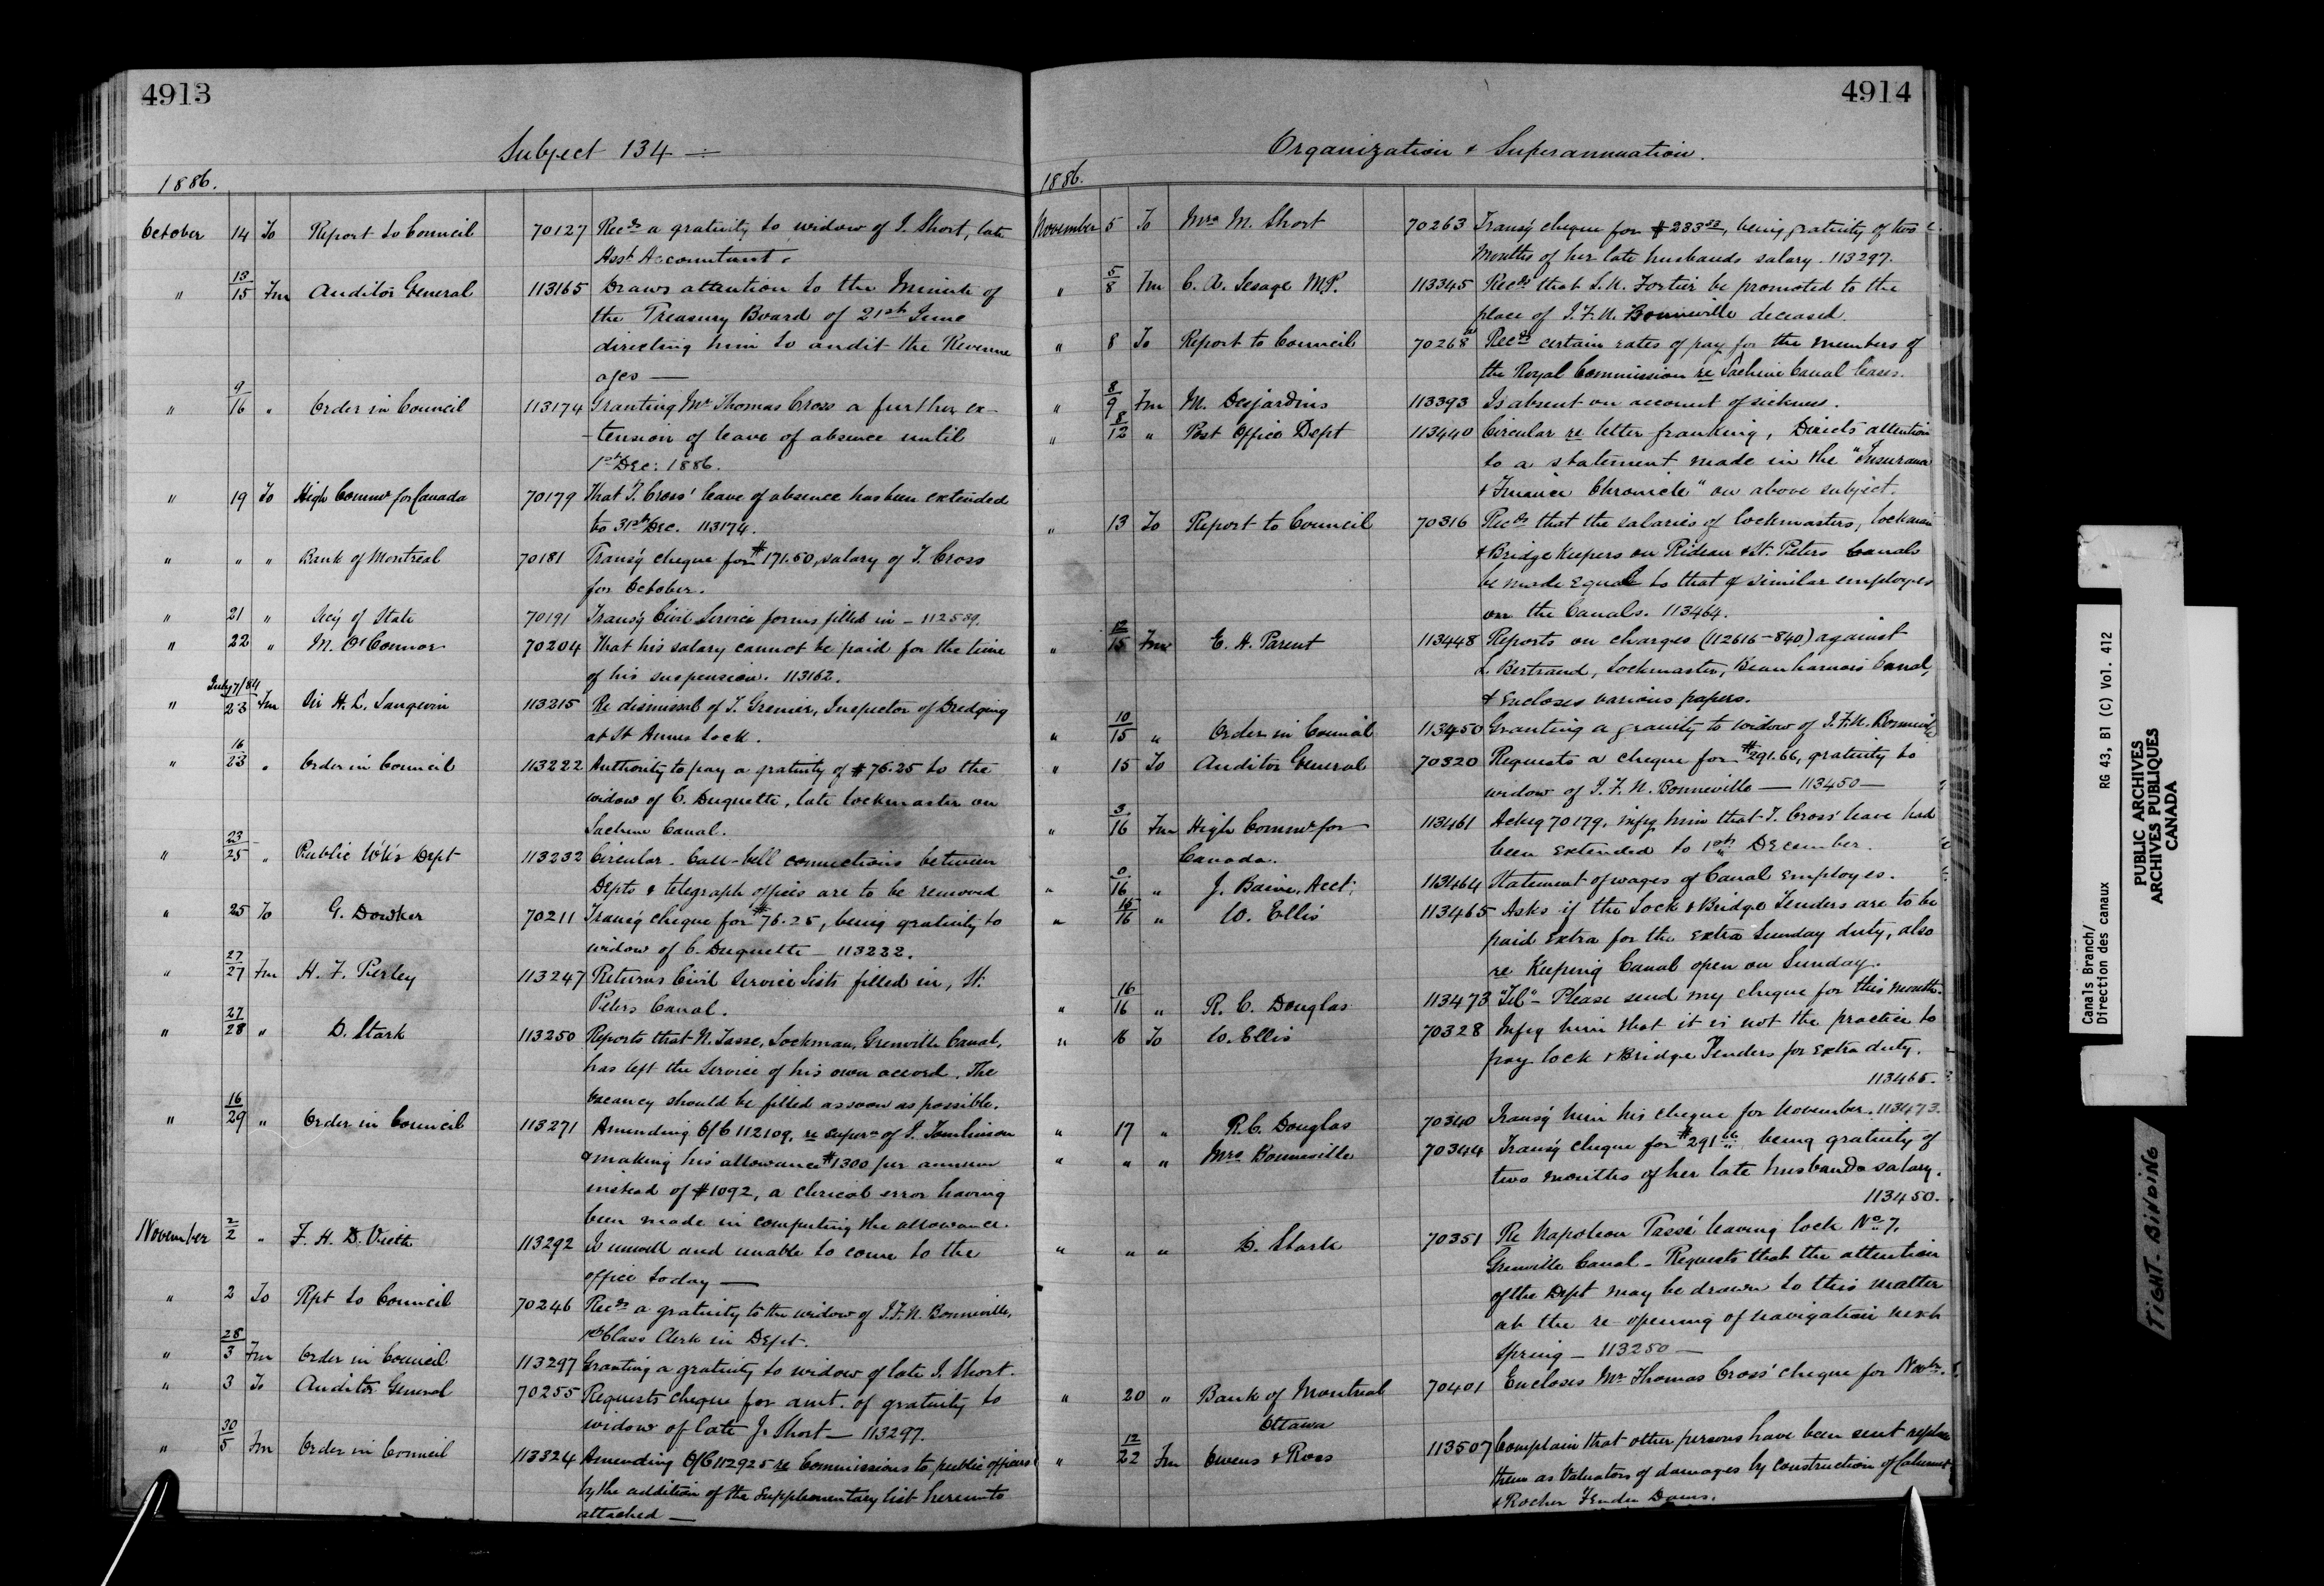 4913
Subject 134 —
1886.
October 14 To Report to Council 70127 Recds a gratuity to widow of J. Short, late
Asst Accountant.
" 13/15 Fm Auditor General 113165 Draws attention to the Minute of
the Treasury Board of 21st June
directing him to audit the Revenue
a/cs —
" 9/16 " Order in Council 113174 Granting Mr Thomas Cross a further ex-
-tension of leave of absence until
1st Dec: 1886.
" 19 To High Commr for Canada 70179 That T. Cross' leave of absence has been extended
to 31st Dec. 113174.
" " " Bank of Montreal 70181 Transg cheque for $171.50, salary of T. Cross
for October.
" 21 " Secy of State 70191 Transg Civil Service forms filled in – 112589.
" 22 " M. O'Connor 70204 That his salary cannot be paid for the time
of his suspension. 113162.
" July 7/84 23 Fm Sir H. L. Langevin 113215 Re dismissal of T. Grenier, Inspector of Dredging
at St Annes Lock.
" 16/23 " Order in Council 113222 Authority to pay a gratuity of $76.25 to the
widow of C. Duquette, late lockmaster on
Lachine Canal.
" 23/25 " Public Wks Dept 113232 Circular. Call-bell connections between
Depts & telegraph offices are to be removed
" 25 To G. Dowker 70211 Transg cheque for $76.25, being gratuity to
widow of C. Duquette – 113222.
" 27/27 Fm H. F. Perley 113247 Returns Civil Service Lists filled in, St.
Peters Canal.
" 27/28 " D. Stark 113250 Reports that N. Tasse, Lockman, Grenville Canal,
has left the Service of his own accord. The
vacancy should be filled as soon as possible.
" 16/29 " Order in Council 113271 Amending O/C 112109, re supern of J. Tomlinson
& making his allowance $1300 per annum
instead of $1092, a clerical error having
been made in computing the allowance.
November 2/2 " F. H. D. Vieth 113292 Is unwell and unable to come to the
office today —
" 2 To Rpt to Council 70246 Recds a gratuity to the widow of J. F. N. Bonneville,
1st Class Clerk in Dept.
" 28/3 Fm Order in Council 113297 Granting a gratuity to widow of late J. Short.
" 3 To Auditor General 70255 Requests cheque for amt. of gratuity to
widow of late J. Short – 113297.
" 30/5 Fm Order in Council 113324 Amending O/C 112925 re Commissions to public officers
by the addition of the Supplementary list hereunto
attached —
4914
Organization & Superannuation.
1886.
November 5 To Mrs M. Short 70263 Transg cheque for $233 33, being gratuity of two
months of her late husbands salary. 113297.
" 5/8 Fm C. A. Lesage M.P. 113345 Recds that L. N. Fortier be promoted to the
place of J. F. N. Bonneville deceased.
" 8 To Report to Council 70268 Recds certain rates of pay for the members of
the Royal Commission re Lachine Canal leases.
" 8/9 Fm M. Desjardins 113393 Is absent on account of sickness.
" 8/12 " Post Office Dept 113440 Circular re letter franking, Directs attention
to a statement made in the "Insurance
& Finance Chronicle" on above subject.
" 13 To Report to Council 70316 Recds that the salaries of lockmasters, lockmen
& Bridge Keepers on Rideau & St. Peters Canals
be made equal to that of similar employes
on the Canals. 113464.
" 12/15 Fm E. H. Parent 113448 Reports on charges (112616–840) against
L. Bertrand, Lockmaster, Beauharnois Canal,
& Encloses various papers.
" 10/15 " Order in Council 113450 Granting a gratuity to widow of J. F. N. Bonneville
" 15 To Auditor General 70320 Requests a cheque for $291.66, gratuity to
widow of J. F. N. Bonneville — 113450 —
" 3/16 Fm High Commr for 113461 Ackg 70179, infg him that T. Cross' leave had
Canada. been extended to 1st December.
" 16 " J. Baine, Acct. 113464 Statement of wages of Canal Employes.
" 15/16 " W. Ellis 113465 Asks if the Lock & Bridge Tenders are to be
paid extra for the extra Sunday duty, also
re Keeping Canal open on Sunday.
" 16/16 " R. C. Douglas 113473 "Tel" – Please send my cheque for this month.
" 16 To W. Ellis 70328 Infg him that it is not the practice to
pay lock & Bridge Tenders for extra duty.
113465.
" 17 " R. C. Douglas 70340 Transg him his cheque for November. 113473.
" " " Mrs Bonneville 70344 Transg cheque for $291 66 being gratuity of
two months of her late husbands salary.
113450.
" " " D. Stark 70351 Re Napoleon Tassé leaving lock No 7,
Grenville Canal – Requests that the attention
of the Dept may be drawn to this matter
at the re-opening of navigation next
Spring – 113250 –
" 20 " Bank of Montreal 70401 Encloses Mr Thomas Cross' cheque for Novbr.
Ottawa
" 12/22 Fm Owens & Ross 113507 Complain that other persons have been sent replace
them as Valuators of damages by construction of Calumet
& Rocher Fendu Dams.
Canals Branch/
Direction des canaux RG 43, B1 (C) Vol. 412
PUBLIC ARCHIVES
ARCHIVES PUBLIQUES
CANADA
TIGHT BINDING